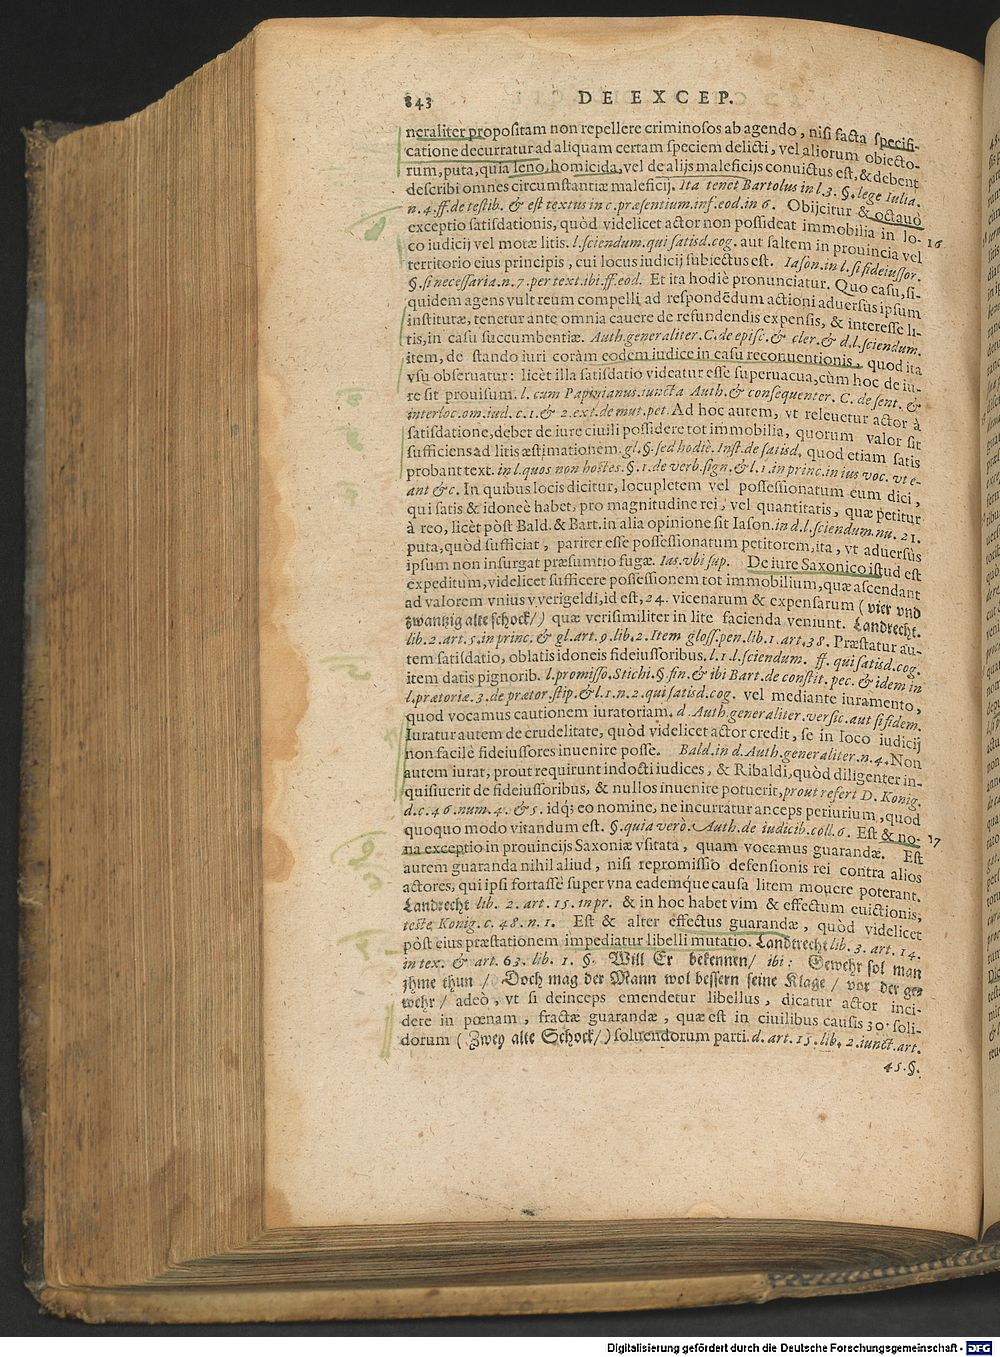 843 DE EXCEP.
neraliter propositam non repellere criminosos ab agendo, nisi facta specifi-
catione decurratur ad aliquam certam speciem delicti, vel aliorum obiecto-
rum, puta, quia leno, homicida, vel de alijs maleficijs conuictus est, & debent
describi omnes circumstantiæ maleficij. Ita tenet Bartolus in l. 3. §. lege Iulia.
n. 4. ff. de testib. & est textus in c. præsentium. inf. eod. in 6. Obijcitur & octauò
exceptio satisdationis, quòd videlicet actor non possideat immobilia in lo- 16
co iudicij vel motæ litis. l. sciendum. qui satisd. cog. aut saltem in prouincia vel
territorio eius principis, cui locus iudicij subiectus est. Iason. in l. si fideiussor.
§. si necessaria. n. 7. per text. ibi. ff. eod. Et ita hodiè pronunciatur. Quo casu, si-
quidem agens vult reum compelli ad respondēdum actioni aduersus ipsum
institutæ, tenetur ante omnia cauere de refundendis expensis, & interesse li-
tis, in casu succumbentiæ. Auth. generaliter. C. de episc. & cler. & d. l. sciendum.
item, de stando iuri coràm eodem iudice in casu reconuentionis, quod ita
vsu obseruatur: licèt illa satisdatio videatur esse superuacua, cùm hoc de iu-
re sit prouisum. l. cum Papinianus. iuncta Auth. & consequenter. C. de sent. &
interloc. om. iud. c. 1. & 2. ext. de mut. pet. Ad hoc autem, vt releuetur actor à
satisdatione, debet de iure ciuili possidere tot immobilia, quorum valor sit
sufficiens ad litis æstimationem. gl. §. sed hodiè. Inst. de satisd. quod etiam satis
probant text. in l. quos non hostes. §. 1. de verb. sign. & l. 1. in princ. in ius voc. vt e-
ant &c. In quibus locis dicitur, locupletem vel possessionatum eum dici,
qui satis & idoneè habet, pro magnitudine rei, vel quantitatis, quæ petitur
à reo, licèt pòst Bald. & Bart. in alia opinione sit Iason. in d. l. sciendum. nu. 21.
puta, quòd sufficiat, pariter esse possessionatum petitorem, ita, vt aduersùs
ipsum non insurgat præsumtio fugæ. Ias. vbi sup. De iure Saxonico istud est
expeditum, videlicet sufficere possessionem tot immobilium, quæ ascendant
ad valorem vnius vverigeldi, id est, 24. vicenarum & expensarum (vier vnd
zwantzig alte schock/) quæ verisimiliter in lite facienda veniunt. Landrecht.
lib. 2. art. 5. in princ. & gl. art. 9. lib. 2. Item gloss. pen. lib. 1. art. 38. Præstatur au-
tem satisdatio, oblatis idoneis fideiussoribus. l. 1. l. sciendum. ff. qui satisd. cog.
item datis pignorib. l. promisso. Stichi. §. fin. & ibi Bart. de constit. pec. & idem in
l. prætoriæ. 3. de prætor. stip. & l. 1. n. 2. qui satisd. cog. vel mediante iuramento,
quod vocamus cautionem iuratoriam. d. Auth. generaliter. versic. aut si fidem.
Iuratur autem de crudelitate, quòd videlicet actor credit, se in loco iudicij
non facilè fideiussores inuenire posse. Bald. in d. Auth. generaliter. n. 4. Non
autem iurat, prout requirunt indocti iudices, & Ribaldi, quòd diligenter in-
quisiuerit de fideiussoribus, & nullos inuenire potuerit, prout refert D. Konig.
d. c. 46. num. 4. & 5. idq; eo nomine, ne incurratur anceps periurium, quod
quoquo modo vitandum est. §. quia verò. Auth. de iudicib. coll. 6. Est & no- 17
na exceptio in prouincijs Saxoniæ vsitata, quam vocamus guarandæ. Est
autem guaranda nihil aliud, nisi repromissio defensionis rei contra alios
actores, qui ipsi fortassè super vna eademq́ue causa litem mouere poterant.
Landrecht lib. 2. art. 15. in pr. & in hoc habet vim & effectum euictionis,
teste Konig. c. 48. n. 1. Est & alter effectus guarandæ, quòd videlicet
pòst eius præstationem impediatur libelli mutatio. Landtrecht lib. 3. art. 14.
in tex. & art. 63. lib. 1. §. Will Er bekennen/ ibi: Gewehr sol man
jhme thun / Doch mag der Mann wol bessern seine Klage / vor der ge-
wehr / adeò, vt si deinceps emendetur libellus, dicatur actor inci-
dere in pœnam, fractæ guarandæ, quæ est in ciuilibus causis 30. soli-
dorum (Zwey alte Schock/) soluendorum parti. d. art. 15. lib. 2. iunct. art.
45. §.
Digitalisierung gefördert durch die Deutsche Forschungsgemeinschaft - DFG